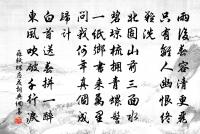 雨後春容清更麗
只有離人幽恨終
難洗
北固山前三面水
碧瓊梳擁青螺髻
一紙鄉書來萬里
問我何年真箇成
歸計
白首送春拚一醉
東風吹破千行淚